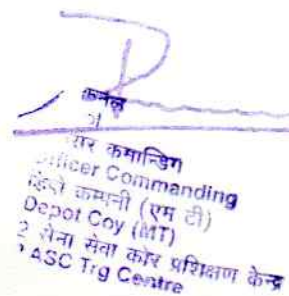 कर्नल
कमान्डिंग
Officer Commanding
डिपो कम्पनी (एम टी)
Depot Coy (MT)
2 सेना सेवा कोर प्रशिक्षण केन्द्र
2 ASC Trg Centre